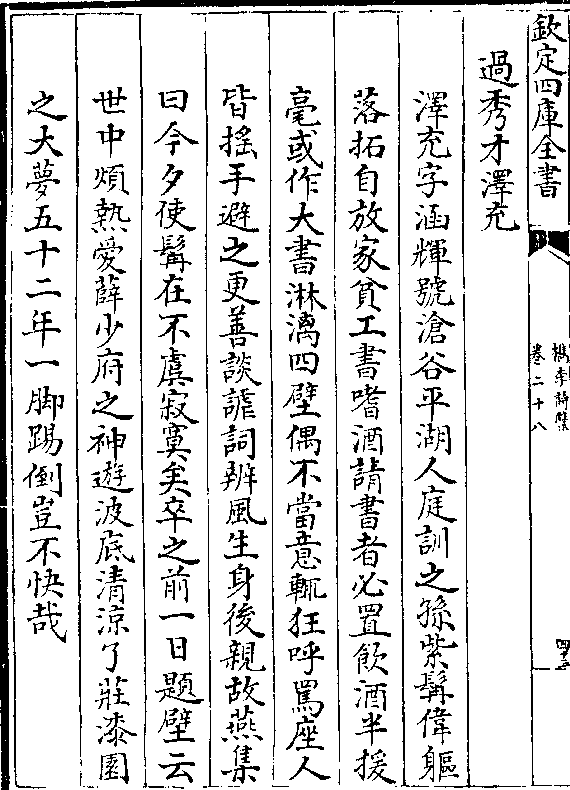 欽定四庫全書
檇李詩繫
卷二十八
過秀才澤充
澤充字涵輝號滄谷平湖人庭訓之孫紫髯偉軀
落拓自放家貧工書嗜酒請書者必置飲酒半援
毫或作大書淋漓四壁偶不當意輒狂呼罵座人
皆搖手避之更善談謔詞辨風生身後親故燕集
曰今夕使髯在不虞寂寞矣卒之前一日題壁云
世中煩熱愛薛少府之神遊波底清涼了莊漆園
之大夢五十二年一脚踢倒豈不快哉